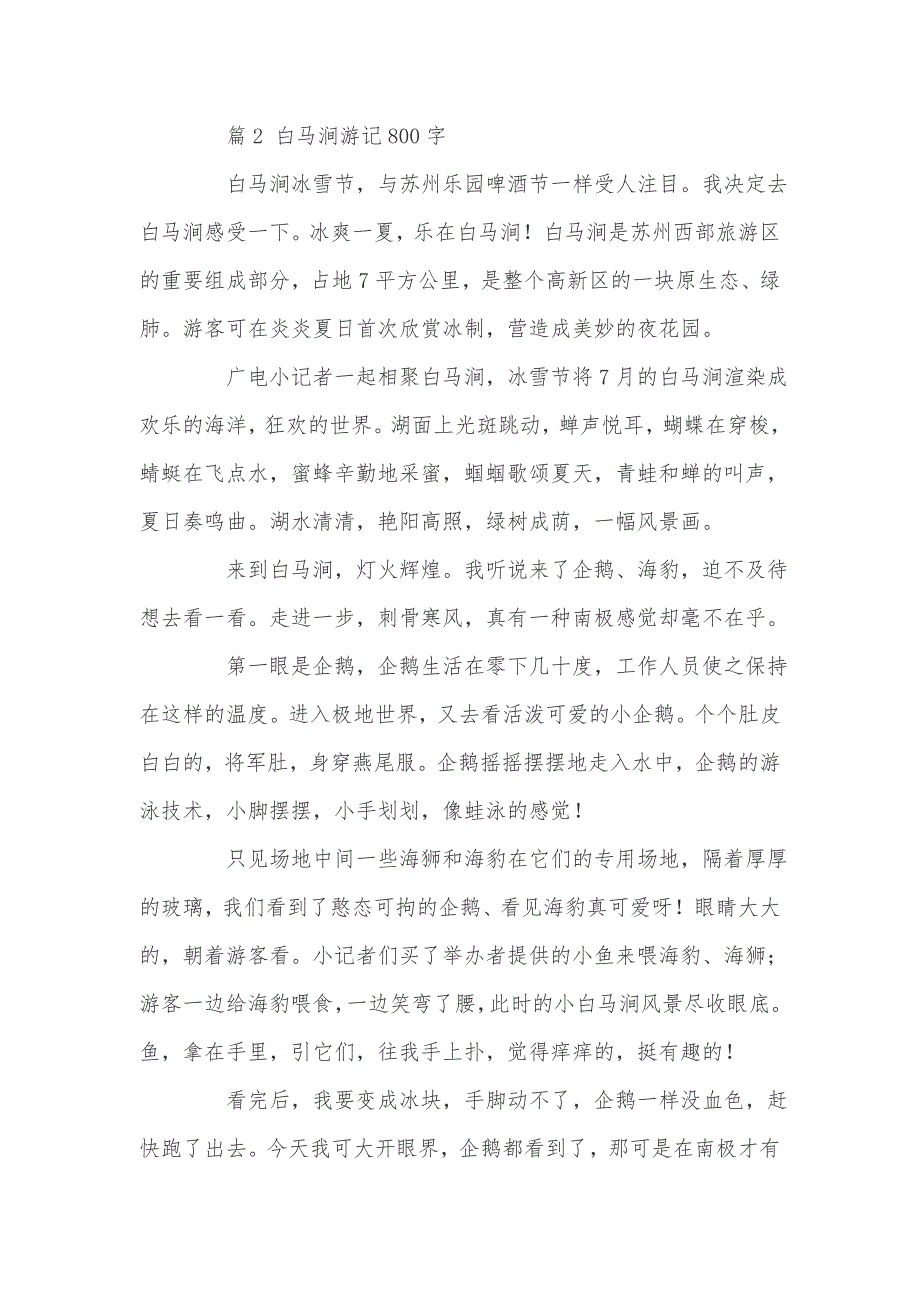 篇2 白马涧游记800字
白马涧冰雪节，与苏州乐园啤酒节一样受人注目。我决定去
白马涧感受一下。冰爽一夏，乐在白马涧！白马涧是苏州西部旅游区
的重要组成部分，占地7平方公里，是整个高新区的一块原生态、绿
肺。游客可在炎炎夏日首次欣赏冰制，营造成美妙的夜花园。
广电小记者一起相聚白马涧，冰雪节将7月的白马涧渲染成
欢乐的海洋，狂欢的世界。湖面上光斑跳动，蝉声悦耳，蝴蝶在穿梭，
蜻蜓在飞点水，蜜蜂辛勤地采蜜，蝈蝈歌颂夏天，青蛙和蝉的叫声，
夏日奏鸣曲。湖水清清，艳阳高照，绿树成荫，一幅风景画。
来到白马涧，灯火辉煌。我听说来了企鹅、海豹，迫不及待
想去看一看。走进一步，刺骨寒风，真有一种南极感觉却毫不在乎。
第一眼是企鹅，企鹅生活在零下几十度，工作人员使之保持
在这样的温度。进入极地世界，又去看活泼可爱的小企鹅。个个肚皮
白白的，将军肚，身穿燕尾服。企鹅摇摇摆摆地走入水中，企鹅的游
泳技术，小脚摆摆，小手划划，像蛙泳的感觉！
只见场地中间一些海狮和海豹在它们的专用场地，隔着厚厚
的玻璃，我们看到了憨态可拘的企鹅、看见海豹真可爱呀！眼睛大大
的，朝着游客看。小记者们买了举办者提供的小鱼来喂海豹、海狮；
游客一边给海豹喂食，一边笑弯了腰，此时的小白马涧风景尽收眼底。
鱼，拿在手里，引它们，往我手上扑，觉得痒痒的，挺有趣的！
看完后，我要变成冰块，手脚动不了，企鹅一样没血色，赶
快跑了出去。今天我可大开眼界，企鹅都看到了，那可是在南极才有